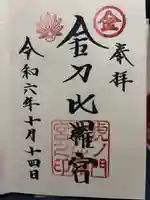 奉拝
㊎
金刀比羅宮
虎ノ門
令和六年十月十四日